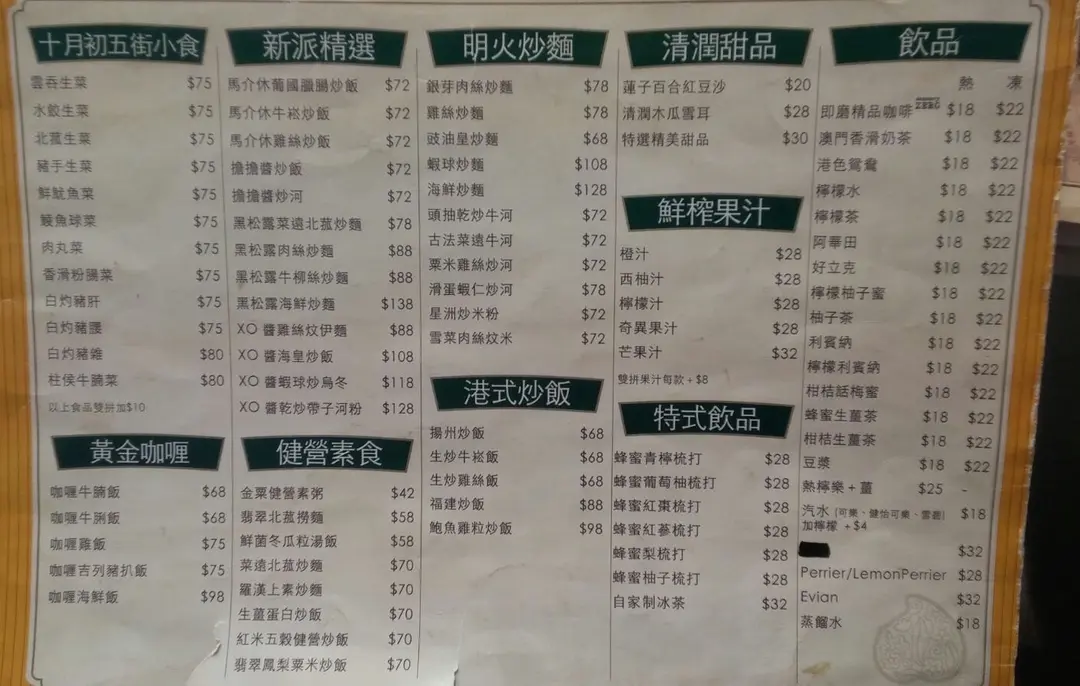 十月初五街小食
雲吞生菜 $75
水餃生菜 $75
北菰生菜 $75
豬手生菜 $75
鮮魷魚菜 $75
鯪魚球菜 $75
肉丸菜 $75
香滑粉腸菜 $75
白灼豬肝 $75
白灼豬腰 $75
白灼豬雜 $80
柱侯牛腩菜 $80
以上食品雙拼加$10
黃金咖喱
咖喱牛腩飯 $68
咖喱牛脷飯 $68
咖喱雞飯 $75
咖喱吉列豬扒飯 $75
咖喱海鮮飯 $98
新派精選
馬介休葡國臘腸炒飯 $72
馬介休牛崧炒飯 $72
馬介休雞絲炒飯 $72
擔擔醬炒飯 $72
擔擔醬炒河 $72
黑松露菜遠北菰炒麵 $78
黑松露肉絲炒麵 $88
黑松露牛柳絲炒麵 $88
黑松露海鮮炒麵 $138
XO 醬雞絲炆伊麵 $88
XO 醬海皇炒飯 $108
XO 醬蝦球炒烏冬 $118
XO 醬乾炒帶子河粉 $128
健營素食
金粟健營素粥 $42
翡翠北菰撈麵 $58
鮮菌冬瓜粒湯飯 $58
菜遠北菰炒麵 $70
羅漢上素炒麵 $70
生薑蛋白炒飯 $70
紅米五穀健營炒飯 $70
翡翠鳳梨粟米炒飯 $70
明火炒麵
銀芽肉絲炒麵 $78
雞絲炒麵 $78
豉油皇炒麵 $68
蝦球炒麵 $108
海鮮炒麵 $128
頭抽乾炒牛河 $72
古法菜遠牛河 $72
粟米雞絲炒河 $72
滑蛋蝦仁炒河 $78
星洲炒米粉 $72
雪菜肉絲炆米 $72
港式炒飯
揚州炒飯 $68
生炒牛崧飯 $68
生炒雞絲飯 $68
福建炒飯 $88
鮑魚雞粒炒飯 $98
清潤甜品
蓮子百合紅豆沙 $20
清潤木瓜雪耳 $28
特選精美甜品 $30
鮮榨果汁
橙汁 $28
西柚汁 $28
檸檬汁 $28
奇異果汁 $28
芒果汁 $32
雙拼果汁每款 + $8
特式飲品
蜂蜜青檸梳打 $28
蜂蜜葡萄柚梳打 $28
蜂蜜紅棗梳打 $28
蜂蜜紅蔘梳打 $28
蜂蜜梨梳打 $28
蜂蜜柚子梳打 $28
自家制冰茶 $32
飲品
熱 凍
即磨精品咖啡 $18 $22
澳門香滑奶茶 $18 $22
港色鴛鴦 $18 $22
檸檬水 $18 $22
檸檬茶 $18 $22
阿華田 $18 $22
好立克 $18 $22
檸檬柚子蜜 $18 $22
柚子茶 $18 $22
利賓納 $18 $22
檸檬利賓納 $18 $22
柑桔話梅蜜 $18 $22
蜂蜜生薑茶 $18 $22
柑桔生薑茶 $18 $22
豆漿 $18 $22
熱檸樂 + 薑 $25 -
汽水 (可樂、健怡可樂、雪碧) $18
加檸檬 + $4
$32
Perrier/LemonPerrier $28
Evian $32
蒸餾水 $18